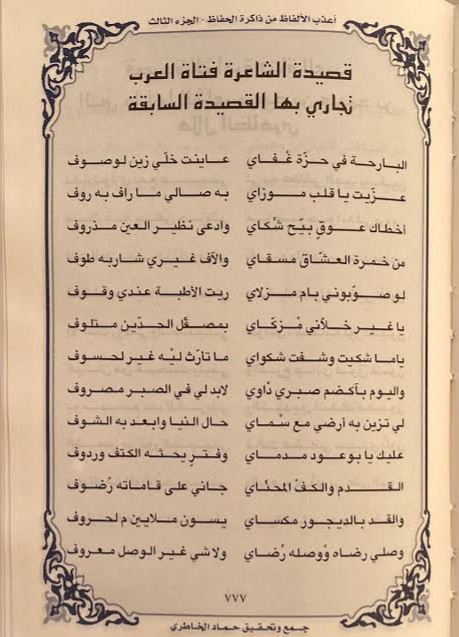 أعذب الألفاظ من ذاكرة الحفاظ - الجزء الثالث
قصيدة الشاعرة فتاة العرب
تجاري بها القصيدة السابقة
البارحة في حزّة غْفاي عاينت خلّي زين لوصوف
عزّيت يا قلب موزاي به صالي ما راف به روف
أخطاك عوقٍ بيّح شْكاي وادعى نظير العين مذروف
من خمرة العشّاق مسقاي والآف غيري شاربه طوف
لو صوّبوني بام مزلاي ريت الأطبة عندي وقوف
يا غير خلّاني مْزكّاي بمصقّل الحدّين متلوف
ياما شكيت وشفت شكواي ما تارّث ليْه غير لحسوف
واليوم بآكضم صبري دْاوي لابد لي في الصبر مصروف
لي تزين به أرضي مع سْماي حال النبا وابعد به الشوف
عليك يا بوعود مدماي وفترٍ يحثه الكتف وردوف
القدم والكفْ المحنّاي جاني على قاماته رْضوف
والقد بالديجور مكساي يسون ملايين م لحروف
وصلي رضاه ووصله رْضاي ولاشي غير الوصل معروف
٧٧٧
جمع وتحقيق حماد الخاطري